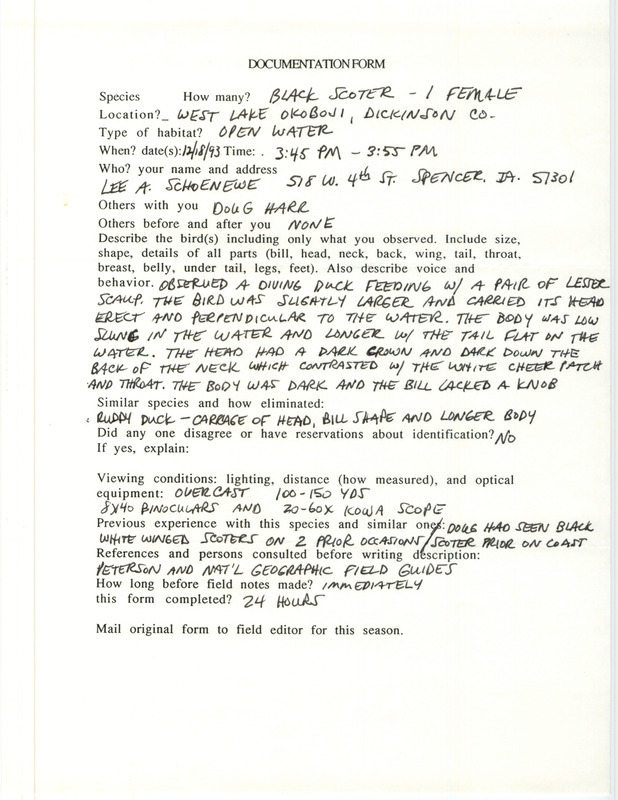 DOCUMENTATION FORM
Species How many? BLACK SCOTER - 1 FEMALE
Location? WEST LAKE OKOBOJI, DICKINSON CO-
Type of habitat? OPEN WATER
When? date(s):12/18/93 Time: . 3:45 PM - 3:55 PM
Who? your name and address
LEE A. SCHOENEWE 518 W. 4th ST. SPENCER. IA. 51301
Others with you DOUG HARR
Others before and after you NONE
Describe the bird(s) including only what you observed. Include size,
shape, details of all parts (bill, head, neck, back, wing, tail, throat,
breast, belly, under tail, legs, feet). Also describe voice and
behavior. OBSERVED A DIVING DUCK FEEDING W/ A PAIR OF LESSER
SCAUP. THE BIRD WAS SLIGHTLY LARGER AND CARRIED ITS HEAD
ERECT AND PERPENDICULAR TO THE WATER. THE BODY WAS LOW
SLUNG IN THE WATER AND LONGER W/ THE TAIL FLAT ON THE
WATER. THE HEAD HAD A DARK CROWN AND DARK DOWN THE
BACK OF THE NECK WHICH CONTRASTED W/ THE WHITE CHEEK PATCH
AND THROAT. THE BODY WAS DARK AND THE BILL LACKED A KNOB
Similar species and how eliminated:
RUDDY DUCK - CARRAGE OF HEAD, BILL SHAPE AND LONGER BODY
Did any one disagree or have reservations about identification? NO
If yes, explain:
Viewing conditions: lighting, distance (how measured), and optical
equipment: OVERCAST 100-150 YDS
8X40 BINOCULARS AND 20-60X KOWA SCOPE
Previous experience with this species and similar ones: DOUG HAD SEEN BLACK
WHITE WINGED SCOTERS ON 2 PRIOR OCCASIONS/SCOTER PRIOR ON COAST
References and persons consulted before writing description:
PETERSON AND NAT'L GEOGRAPHIC FIELD GUIDES
How long before field notes made? IMMEDIATELY
this form completed? 24 HOURS
Mail original form to field editor for this season.